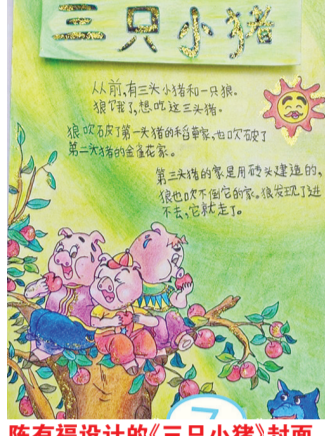 三只小猪
从前,有三头小猪和一只狼.
狼饿了,想吃这三头猪.
狼吹破了第一头猪的稻草家,也吹破了
第二头猪的金雀花家。
第三头猪的家是用砖头建造的,
狼也吹不倒它的家。狼发现了进
不去,它就走了。
陈有福设计的《三只小猪》封面